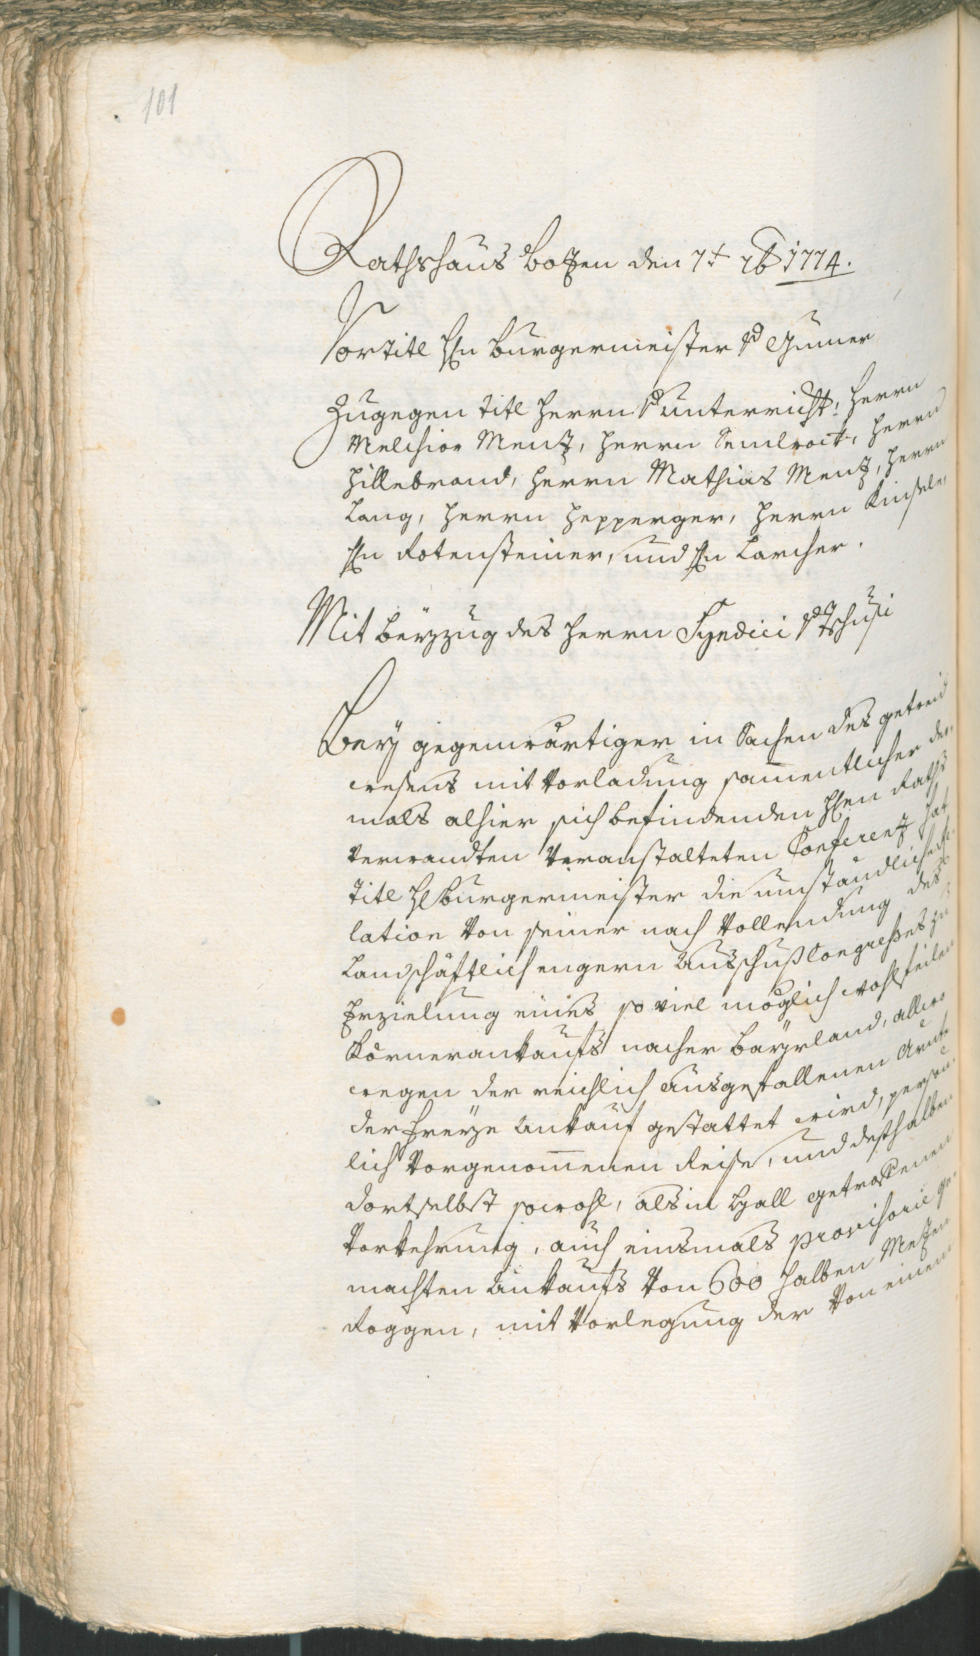 101
Rathshaus Botzen den 7t 7b 1774.
Vor titl Hn Burgermeister v Gumer
Zugegen titl Herrn v Unterricht: Herrn
Melchior Mentz, Herrn Semlroch, Herrn
Hillebrand, Herrn Mathias Mentz, Herrn
Lang, Herrn Hepperger, Herrn Kinsele,
Hn Rotensteiner, und Hn Larcher.
Mit Beyzug des Herrn Syndici v Tschusi
Bey gegenwärtiger in Sachen des getreid
wesens mit Vorladung sammentlicher der
mals alhier sich befindenden Hhen Raths
Verwandten Veranstalteten Conferentz hat
titl H Burgermeister die umständliche Re
lation von seiner nach Vollendung des
Landschäftlich engern Ausschuß Congreßes zu
Erzielung eines so viel möglich wohlfeilen
Körnerankaufs nacher Bayrland, allwo
wegen der reichlich ausgefallenen Arndte
der freye Ankauf gestattet wird, persön
lich vorgenommenen Reise, und desthalben
dortselbst sowohl, als in Hall getroffenen
Vorkehrung, auch einsmals provisorie ge
machten Ankaufs von 600 halben Metzen
Roggen, mit Vorlegung der von einem